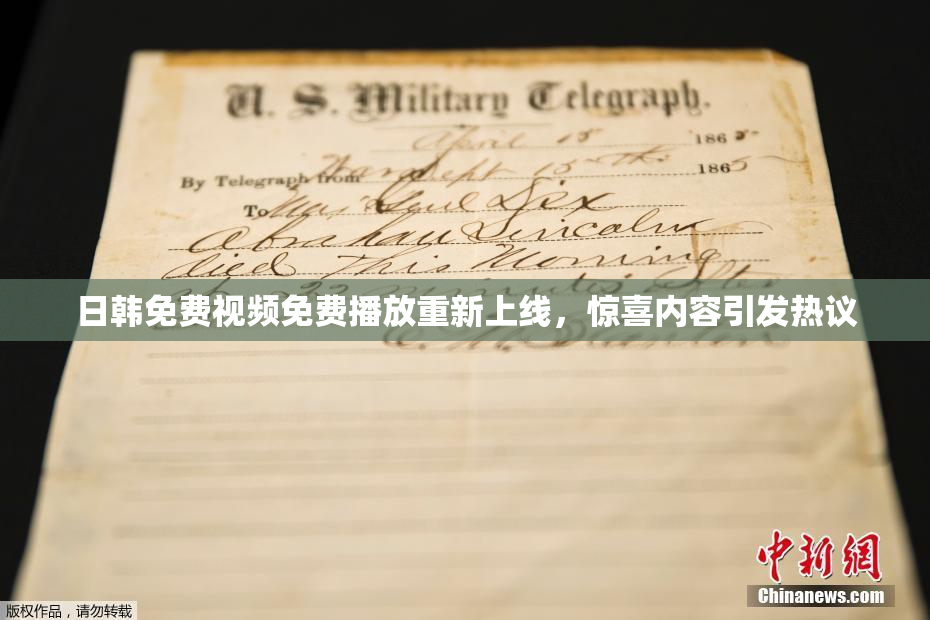 U. S. Military Telegraph.
April 15 1865.
By Telegraph from War Dept 15th 1865
To Maj Genl Dix
Abraham Lincoln
died This Morning
at 22 minutes after
日韩免费视频免费播放重新上线，惊喜内容引发热议
E. M. Stanton
中新网
Chinanews.com
版权作品，请勿转载